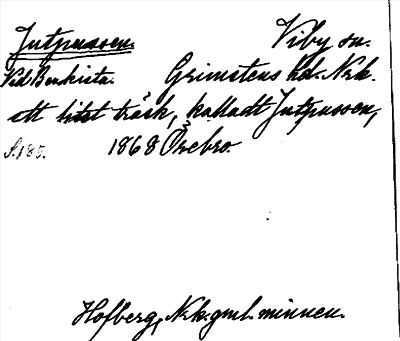 Jutpussen. Viby sn.
Vid Benhista. Grimstens hd. Nrk.
ett litet träsk, kalladt Jutpussen,
S. 185. 1868 Örebro.
Hofberg, Nrk. gml. minnen.